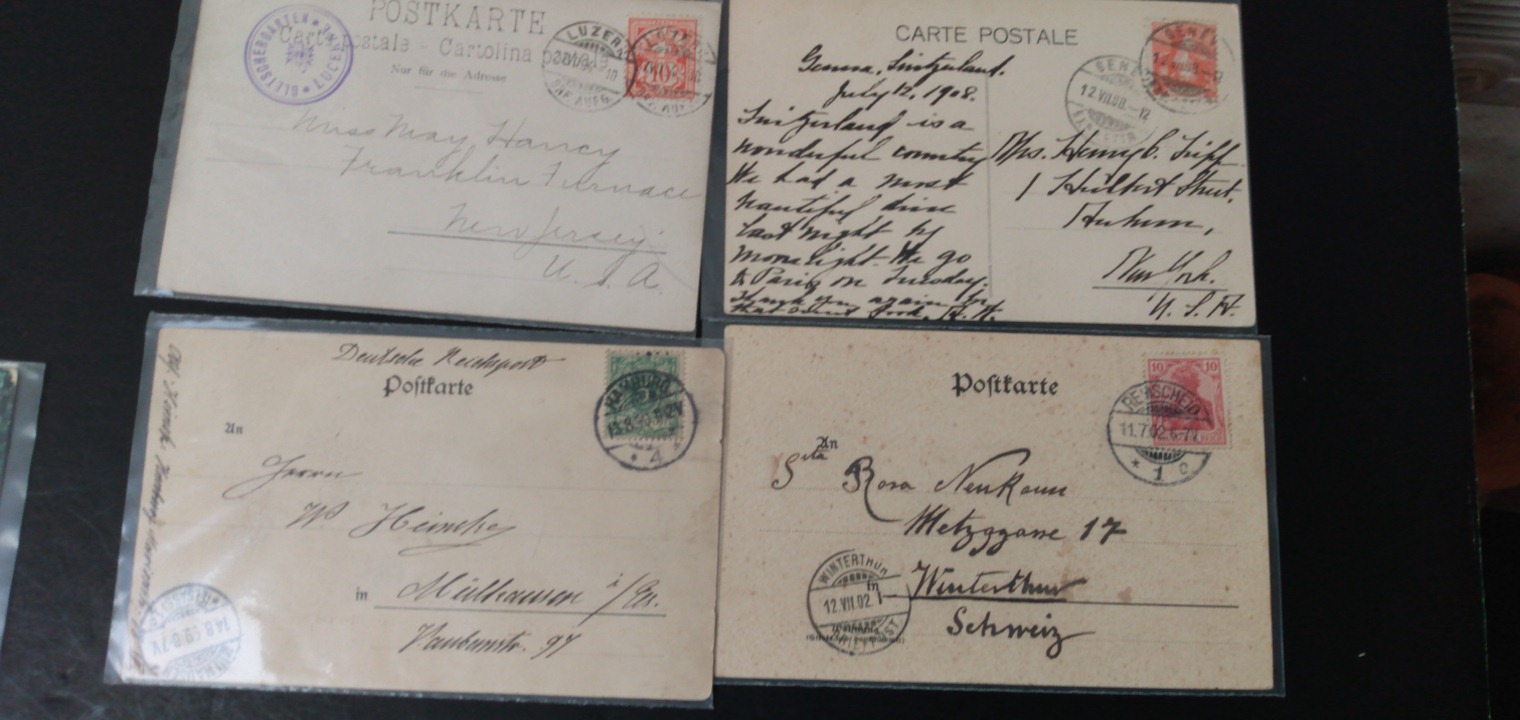 POSTKARTE
Carte postale - Cartolina postale
Nur für die Adresse
GLETSCHERGARTEN LUCERNE
LUZERN
10
Miss May Hancy
Franklin Furnace
New Jersey
U. S. A.
CARTE POSTALE
Geneva, Switzerland.
July 12, 1908.
Switzerland is a
wonderful country
We had a most
beautiful drive
last night by
moonlight. We go
to Paris on Tuesday.
Thank you again for
that book.
12.VII.08.-12
Mrs. Henry C.
1 Street,
Auburn,
New York.
U. S. A.
Deutsche Reichspost
Postkarte
HAMBURG
4
An
Herrn
W Heincke
in Mülhausen i/Es.
Vaubanstr. 97
14.8.
Postkarte
10 10
REMSCHEID
11.7.02.6-7N.
* 1 c
An
Rosa
Metzggasse 17
in Winterthur
Schweiz
WINTERTHUR
12.VII.02.
BRIEFTPOST